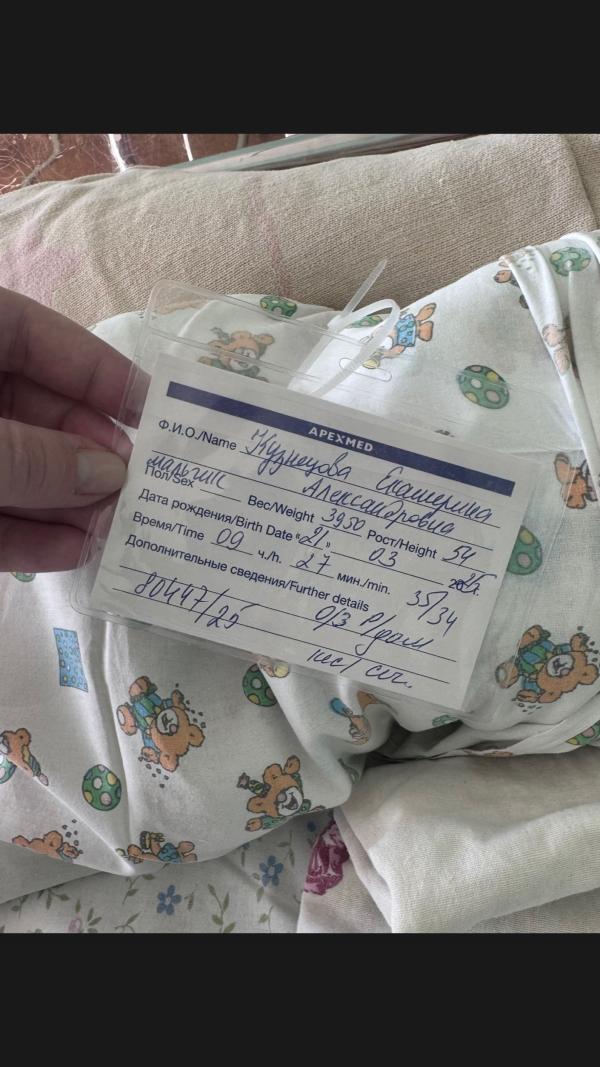 APEXMED
Ф.И.О./Name Кузнецова Екатерина
Александровна
мальчик
Пол/Sex Вес/Weight 3950 Рост/Height 54
Дата рождения/Birth Date "21" 03 2025г.
Время/Time 09 ч./h. 27 мин./min. 35/34
Дополнительные сведения/Further details
80447/25 0/3 Р/дом
кес/ сеч.